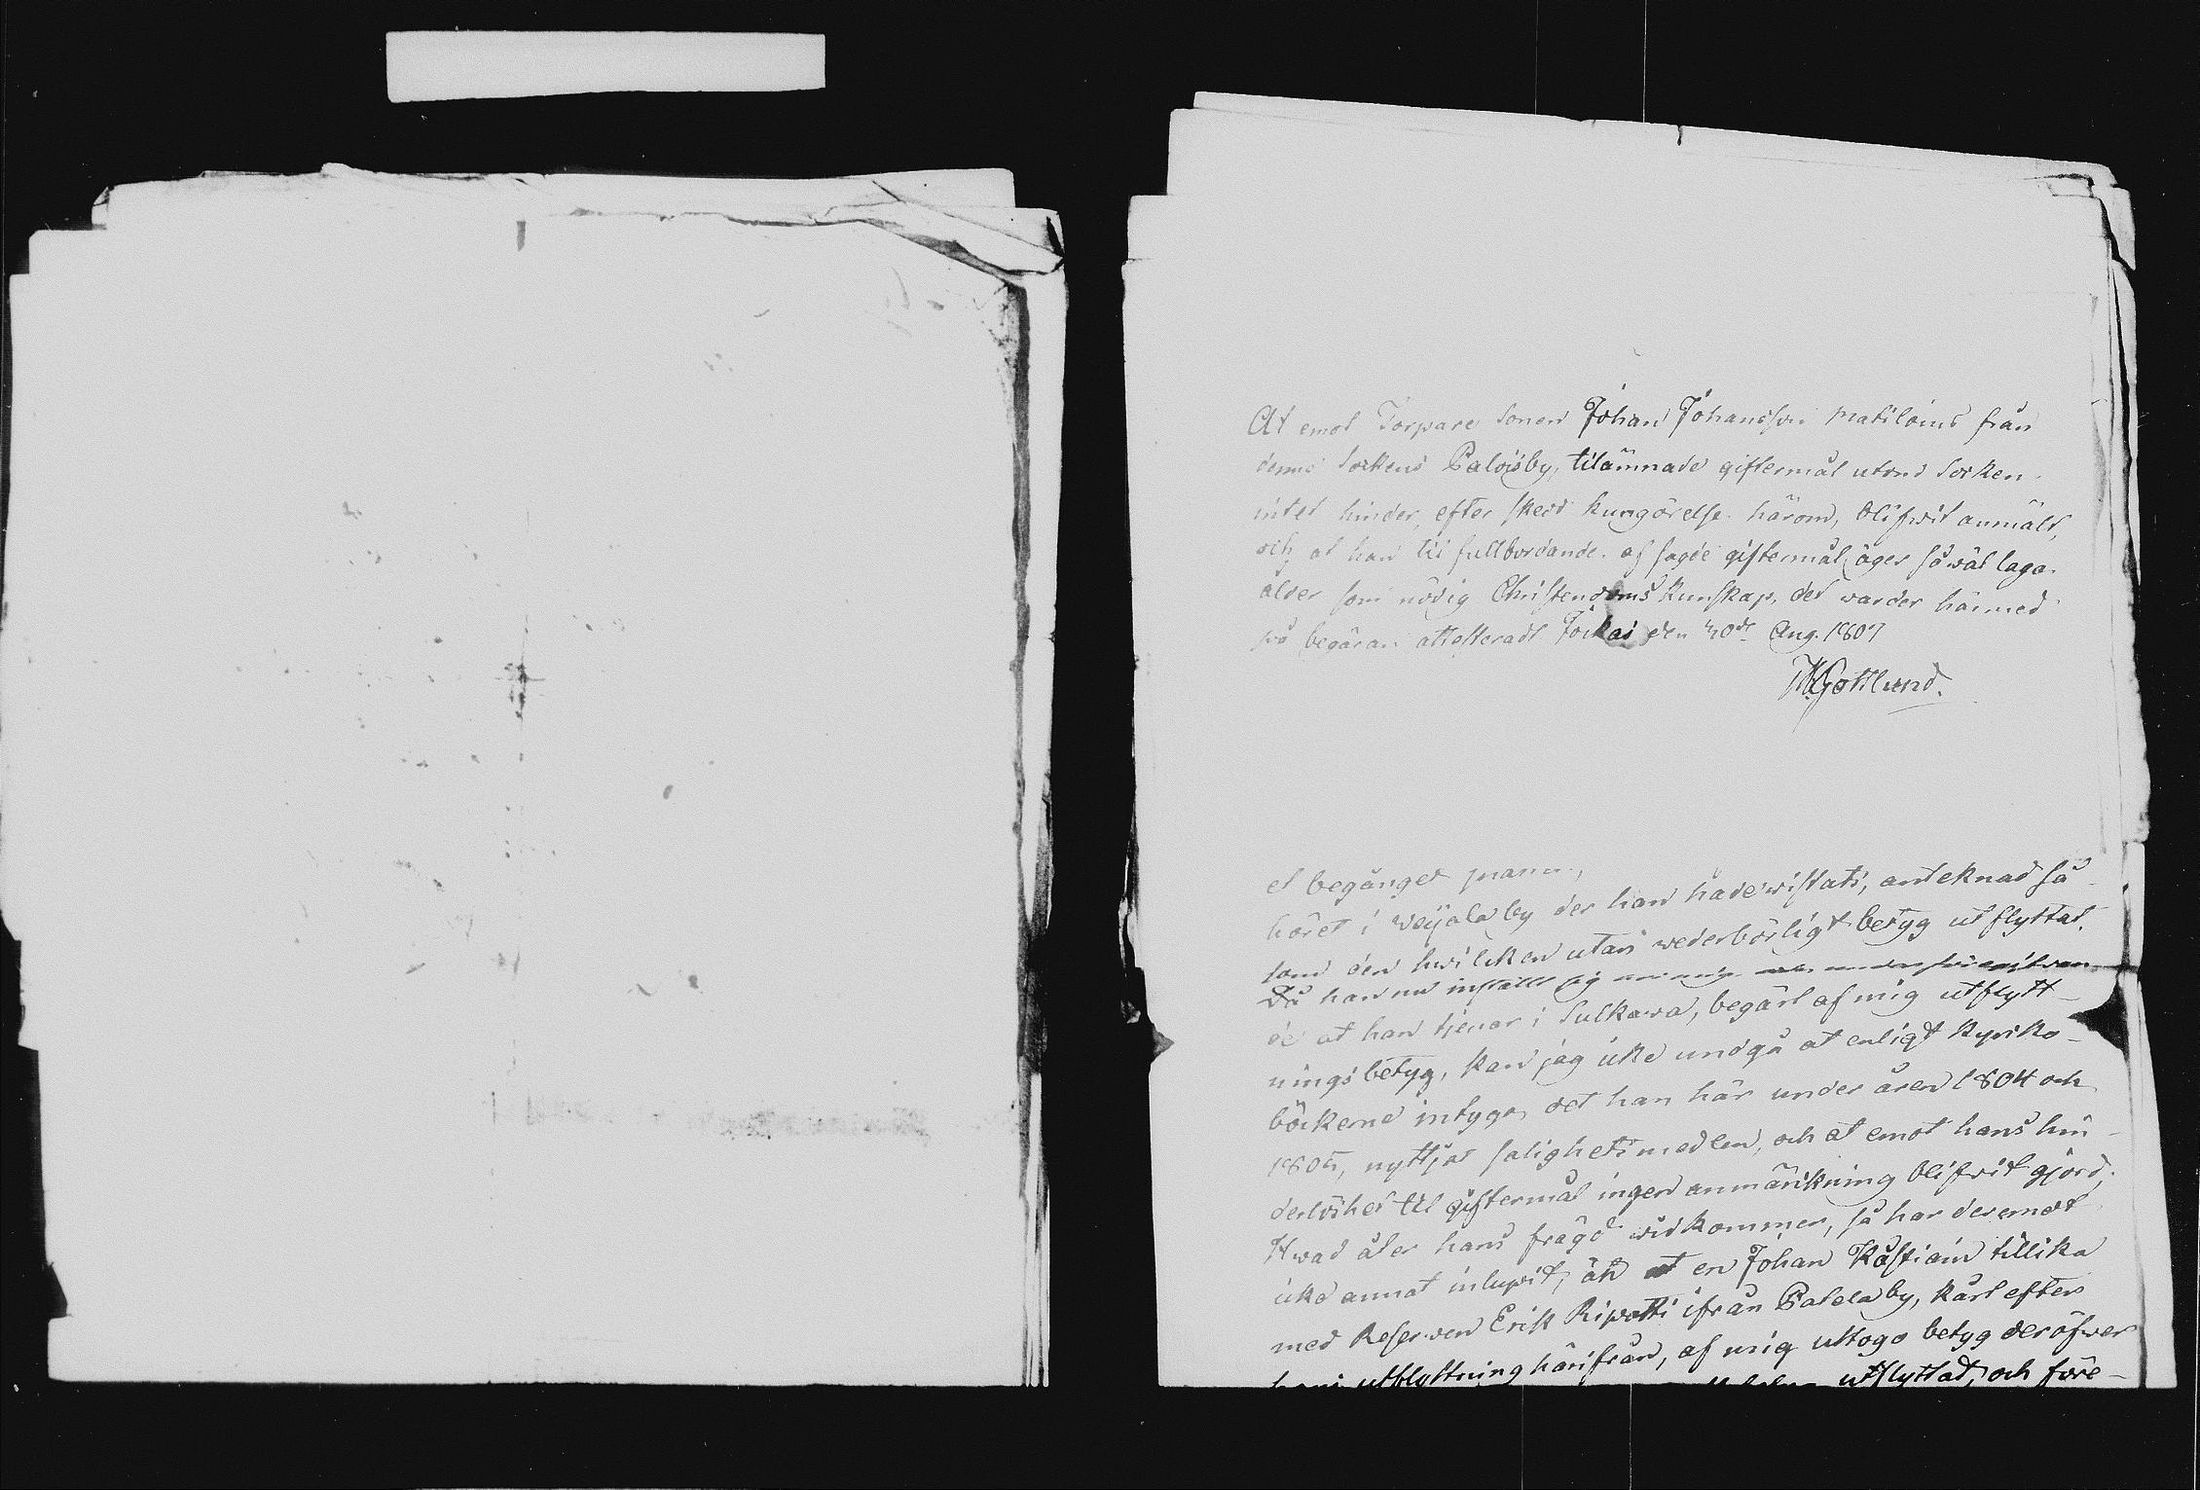 At emot Torpare Sonen Johan Johansson Matilains från
denne Sockens Palois by, tilämnade giftermål utom Socken
intet hinder, efter skedd kungörelse härom, blifwit anmält,
och at han til fullbordande af sagde giftermål äger så wäl laga
ålder som nödig Christendoms kunskap, det warder härmed
på begäran attesteradt Jockas den 30de Aug. 1807
Gottlund.
et begånget
höret i Weijala by der han hade wistats, anteknad så
som den hwilcken utan wederbörligt betyg utflyttat.
Då han nu instält sig
de at han tjenar i Sulkawa, begärt af mig utflytt-
ningsbetyg, kan jag icke undgå at enligt Kyrko-
böckerne intyga det han här under åren 1804 och
1805, nyttjat salighetsmedlen, och at emot hans hin-
derlöshet til giftermål ingen anmärkning blifwit gjord;
Hwad åter hans frägd widkommer, så har deremot
icke annat inlupit, än at en Johan Kåstiain tillika
med Reserven Erik Ripatti ifrån Patala by, kårt efter
hans utflyttning härifrån, af mig uttogo betyg deröfwer
utflyttad, och före-